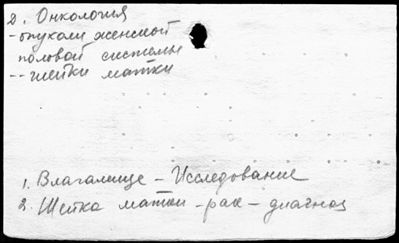 2. Онкология
- опухоли женской
половой системы
-- шейки матки
1. Влагалище - Исследование
2. Шейка матки - рак - диагноз